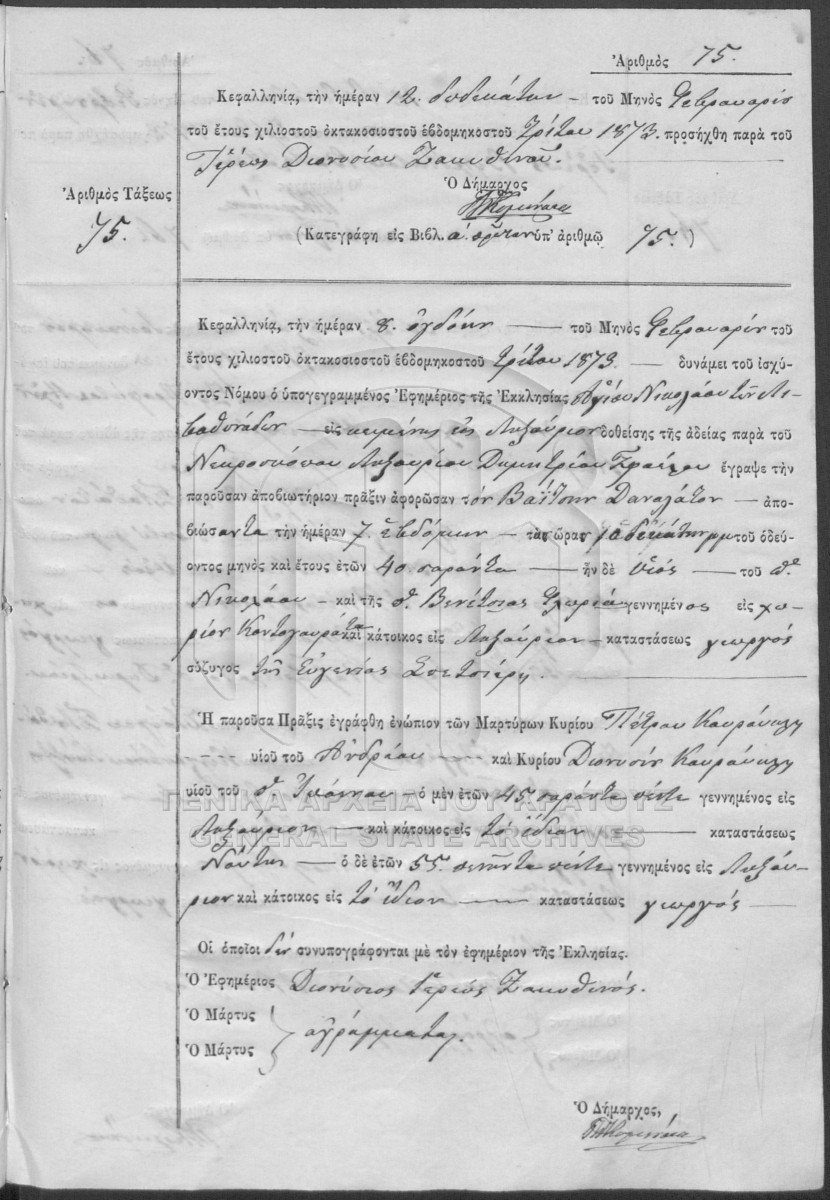 Ἀριθμὸς 75.
Κεφαλληνίᾳ, τὴν ἡμέραν 12. δωδεκάτην — τοῦ Μηνὸς Φεβρουαρίου
τοῦ ἔτους χιλιοστοῦ ὀκτακοσιοστοῦ ἑβδομηκοστοῦ Τρίτου 1873. προσήχθη παρὰ τοῦ
Ἱερέως Διονυσίου Ζακυθινοῦ.
Ὁ Δήμαρχος
Ἀριθμὸς Τάξεως
75.
(Κατεγράφη εἰς Βιβλ. α΄. ὑπ' ἀριθμῷ 75.)
Κεφαλληνίᾳ, τὴν ἡμέραν 8. ὀγδόην — τοῦ Μηνὸς Φεβρουαρίου τοῦ
ἔτους χιλιοστοῦ ὀκτακοσιοστοῦ ἑβδομηκοστοῦ τρίτου 1873. — δυνάμει τοῦ ἰσχύ
οντος Νόμου ὁ ὑπογεγραμμένος Ἐφημέριος τῆς Ἐκκλησίας Ἁγίου Νικολάου τῶν
— εἰς κειμένης εἰς Ληξούριον δοθείσης τῆς ἀδείας παρὰ τοῦ
Νεκροσκόπου Ληξουρίου Δημητρίου ἔγραψε τὴν
παροῦσαν ἀποβιωτήριον πρᾶξιν ἀφορῶσαν τὸν Βαΐτσην Δαναλάτον — ἀπο-
βιώσαντα τὴν ἡμέραν 7. ἑβδόμην — τὰς ὥρας 10 δεκάτην μμ τοῦ ὁδεύ-
οντος μηνὸς καὶ ἔτους ἐτῶν 40 σαράντα — ἦν δὲ υἱός — τοῦ π.
Νικολάου — καὶ τῆς π. Βενέτσιας γεννημένος εἰς χω-
ρίον Κοντογουράτα καὶ κάτοικος εἰς Ληξούριον — καταστάσεως γεωργός
σύζυγος τῆς Εὐγενίας
Ἡ παροῦσα Πρᾶξις ἐγράφθη ἐνώπιον τῶν Μαρτύρων Κυρίου Πέτρου Κουρούκλη
υἱοῦ τοῦ Ἀνδρέου — καὶ Κυρίου Διονυσίου Κουρούκλη
υἱοῦ τοῦ π. Ἰωάννου — ὁ μὲν ἐτῶν 45 σαράντα πέντε γεννημένος εἰς
ΓΕΝΙΚΑ ΑΡΧΕΙΑ ΤΟΥ ΚΡΑΤΟΥΣ
Ληξούριον — καὶ κάτοικος εἰς τὸ ἴδιον — καταστάσεως
GENERAL STATE ARCHIVES
Ναύτης — ὁ δὲ ἐτῶν 55. πενῆντα πέντε γεννημένος εἰς Ληξού-
ριον καὶ κάτοικος εἰς τὸ ἴδιον — καταστάσεως γεωργός —
Οἱ ὁποῖοι δὲν συνυπογράφονται μὲ τὸν ἐφημέριον τῆς Ἐκλησίας.
Ὁ Ἐφημέριος Διονύσιος Ἱερεὺς Ζακυθινός.
Ὁ Μάρτυς
ἀγράμματοι.
Ὁ Μάρτυς
Ὁ Δήμαρχος,